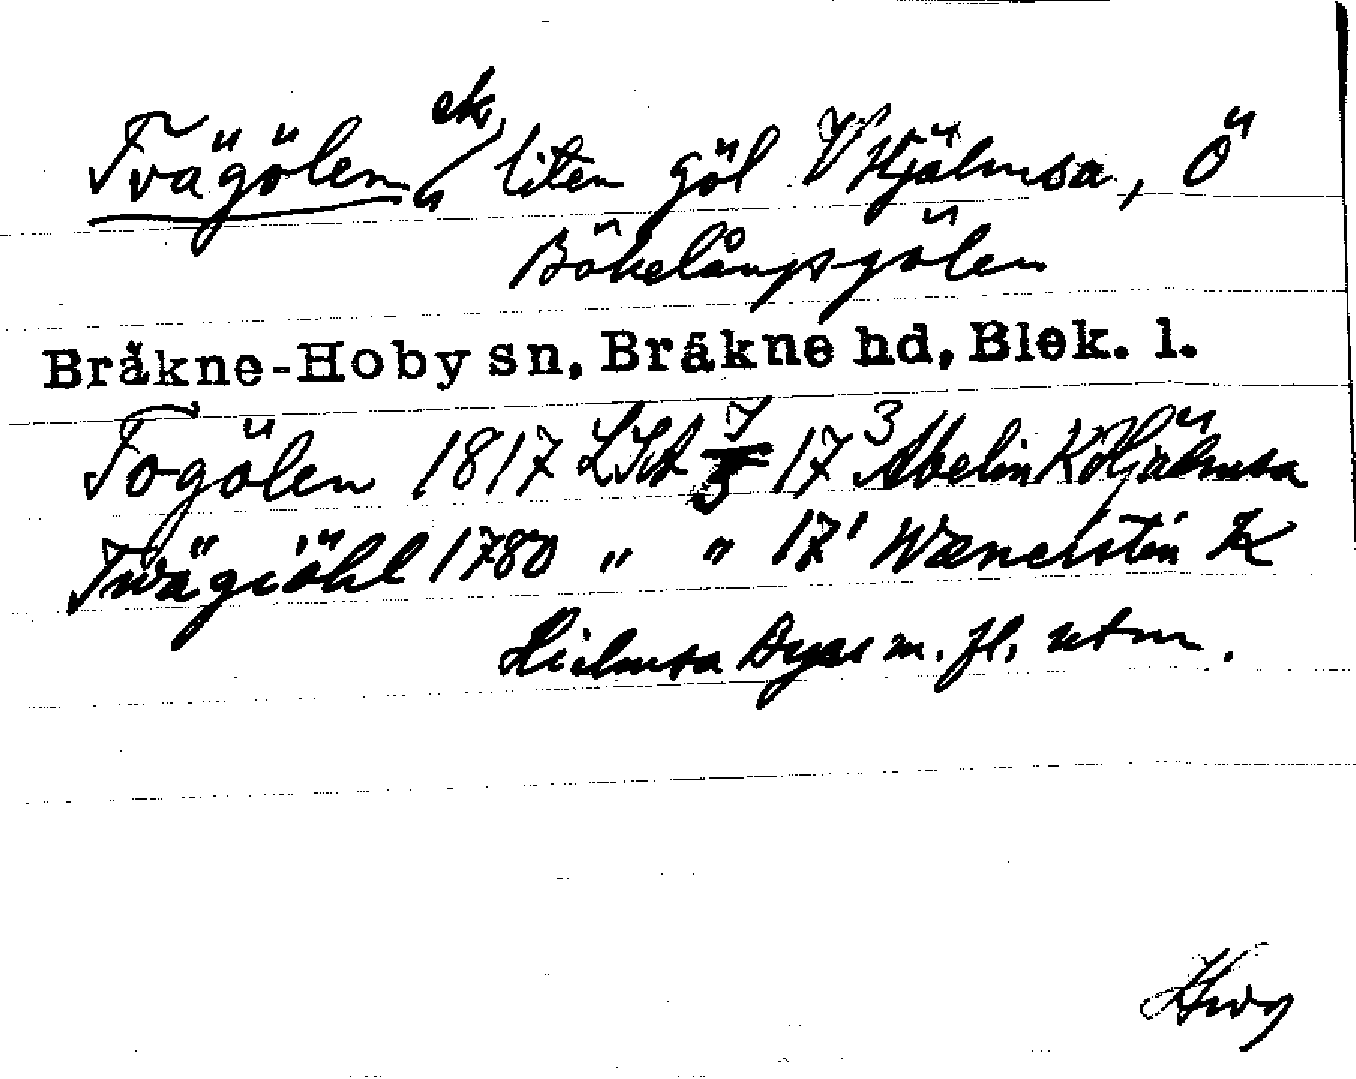 Tvägölen ek/" liten göl V Hjälmsa, Ö
Bökelångsgölen
Bräkne-Hoby sn, Bräkne hd, Blek. l.
Togölen 1817 LSA 17³ Abelin K Hjälmsa
Twägiöhl 1780 " " 17¹ Wænerstin K
Hielmsa Byae m. fl. utm.